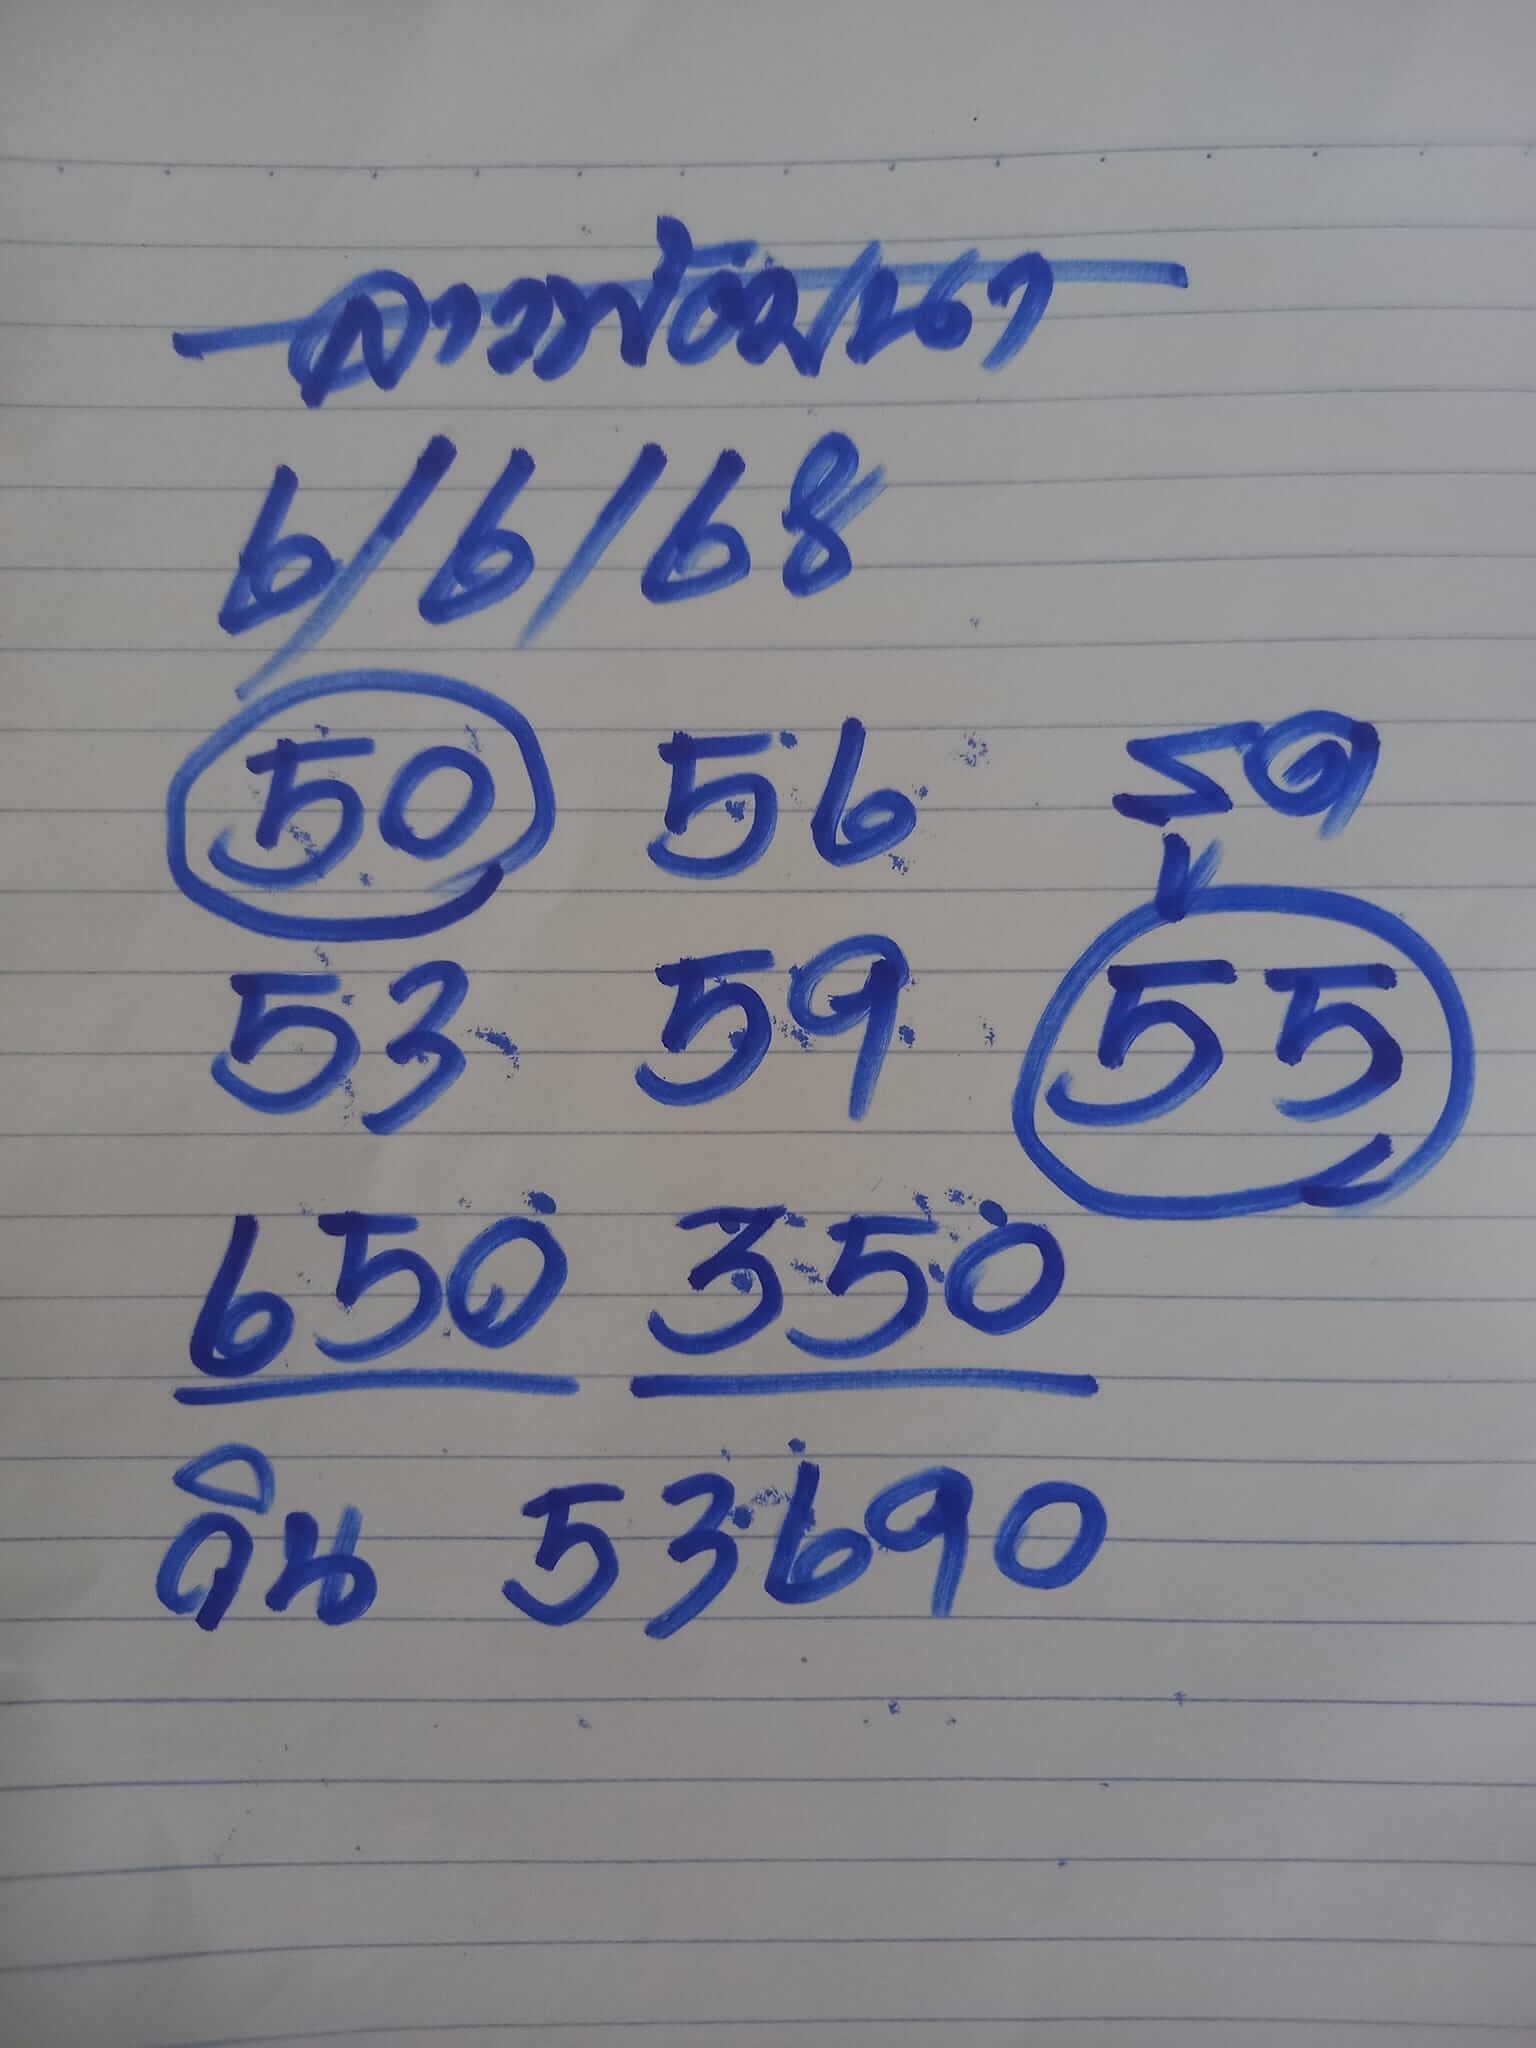 ลาวพัฒนา
6/6/68
50 56 รูด
53 59 55
650 350
วิน 53690